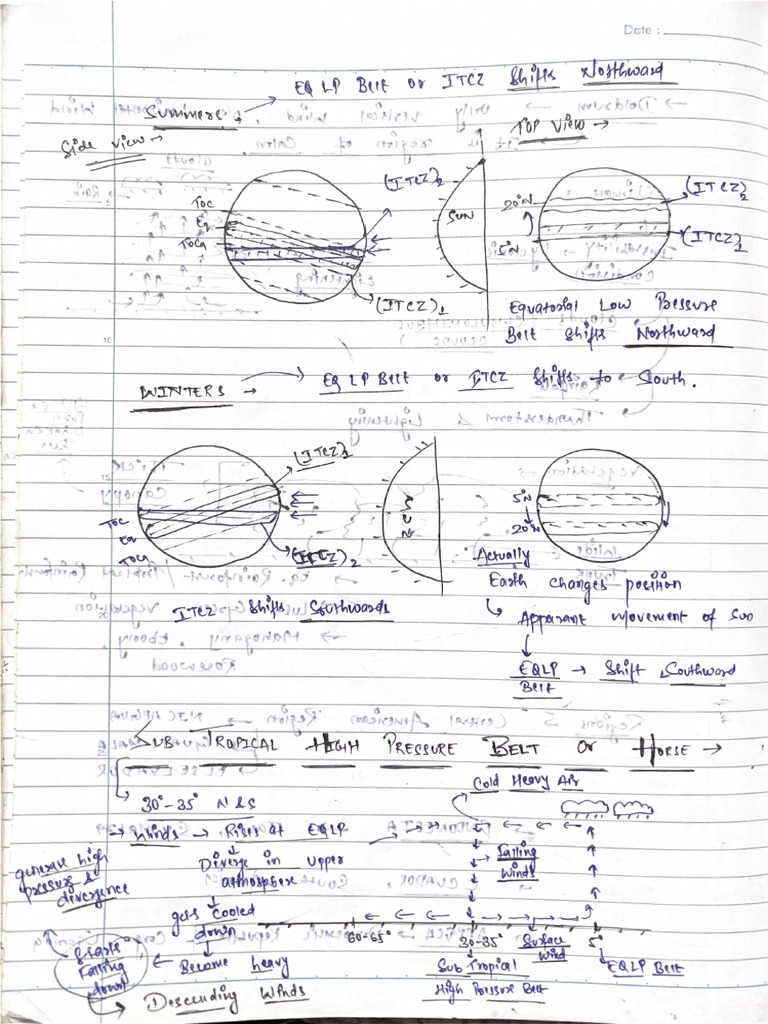 Date :
EQ LP Belt or ITCZ Shifts Northward
Summers →
Side view →
TOP VIEW →
(ITCZ)2
TOC
Eq
TOCa
SUN
(ITCZ)1
20°N
5°N
(ITCZ)2
(ITCZ)1
Equatorial Low Pressure
Belt Shifts Northward
WINTERS → EQ LP Belt or ITCZ Shifts to South.
(ITCZ)1
TOC
Eq
TOCa
(ITCZ)2
SUN
5°N
20°N
ITCZ Shifts Southwards
Actually
Earth changes position
↳ Apparant movement of Sun
↓
EQLP → Shift Southward
Belt
SUB TROPICAL HIGH PRESSURE BELT OR HORSE →
30°-35° N & S
→ Winds → Rises at EQLP
↓
Diverge in upper
atmosphere
↓
gets cooled
down
↓
Become heavy
←
Starts
Falling
down
→ Descending Winds
generate high
pressure &
divergence
Cold Heavy Air
→ Falling
Winds
60-65°
30-35°
Surface
Wind
5°
Sub Tropical
High Pressure Belt
↳ EQLP Belt